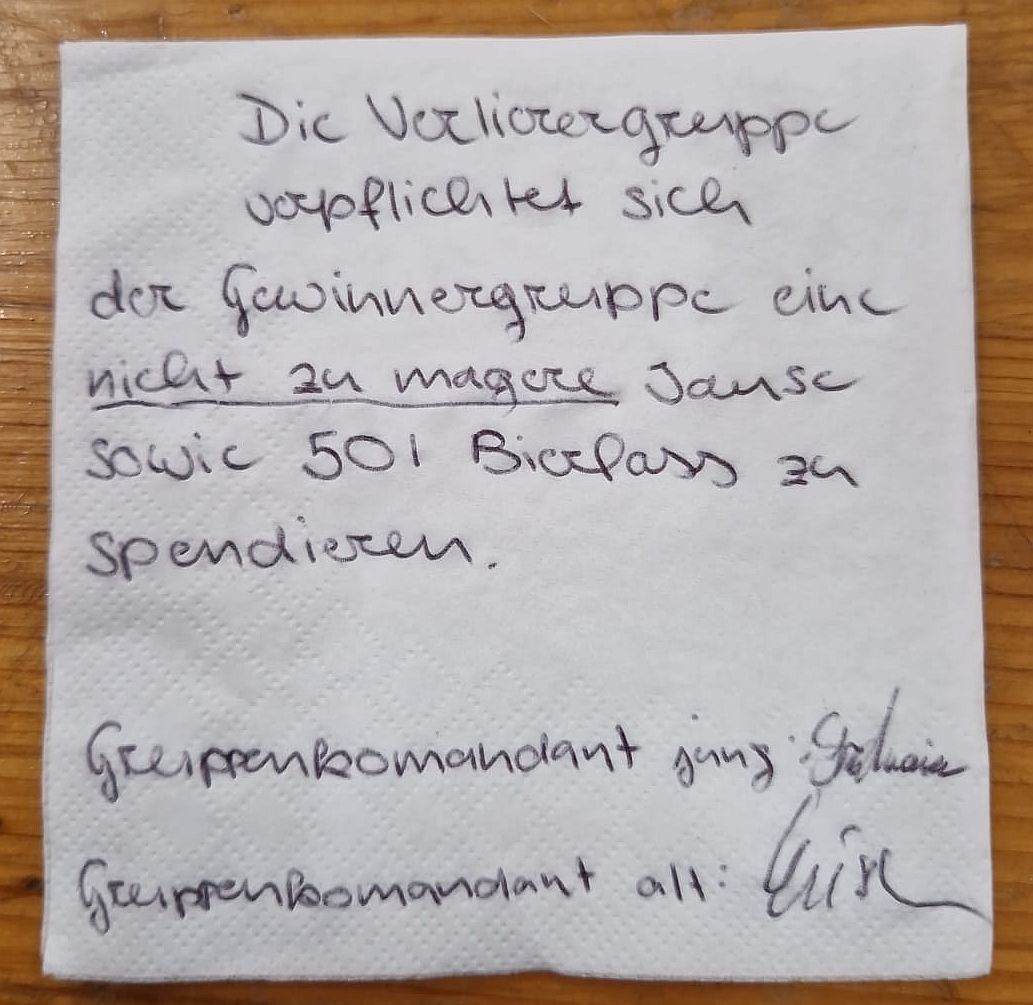 Die Verlierergruppe
verpflichtet sich
der Gewinnergruppe eine
nicht zu magere Jause
sowie 50l Bierfass zu
spendieren.
Gruppenkomandant jung:
Gruppenkomandant alt: